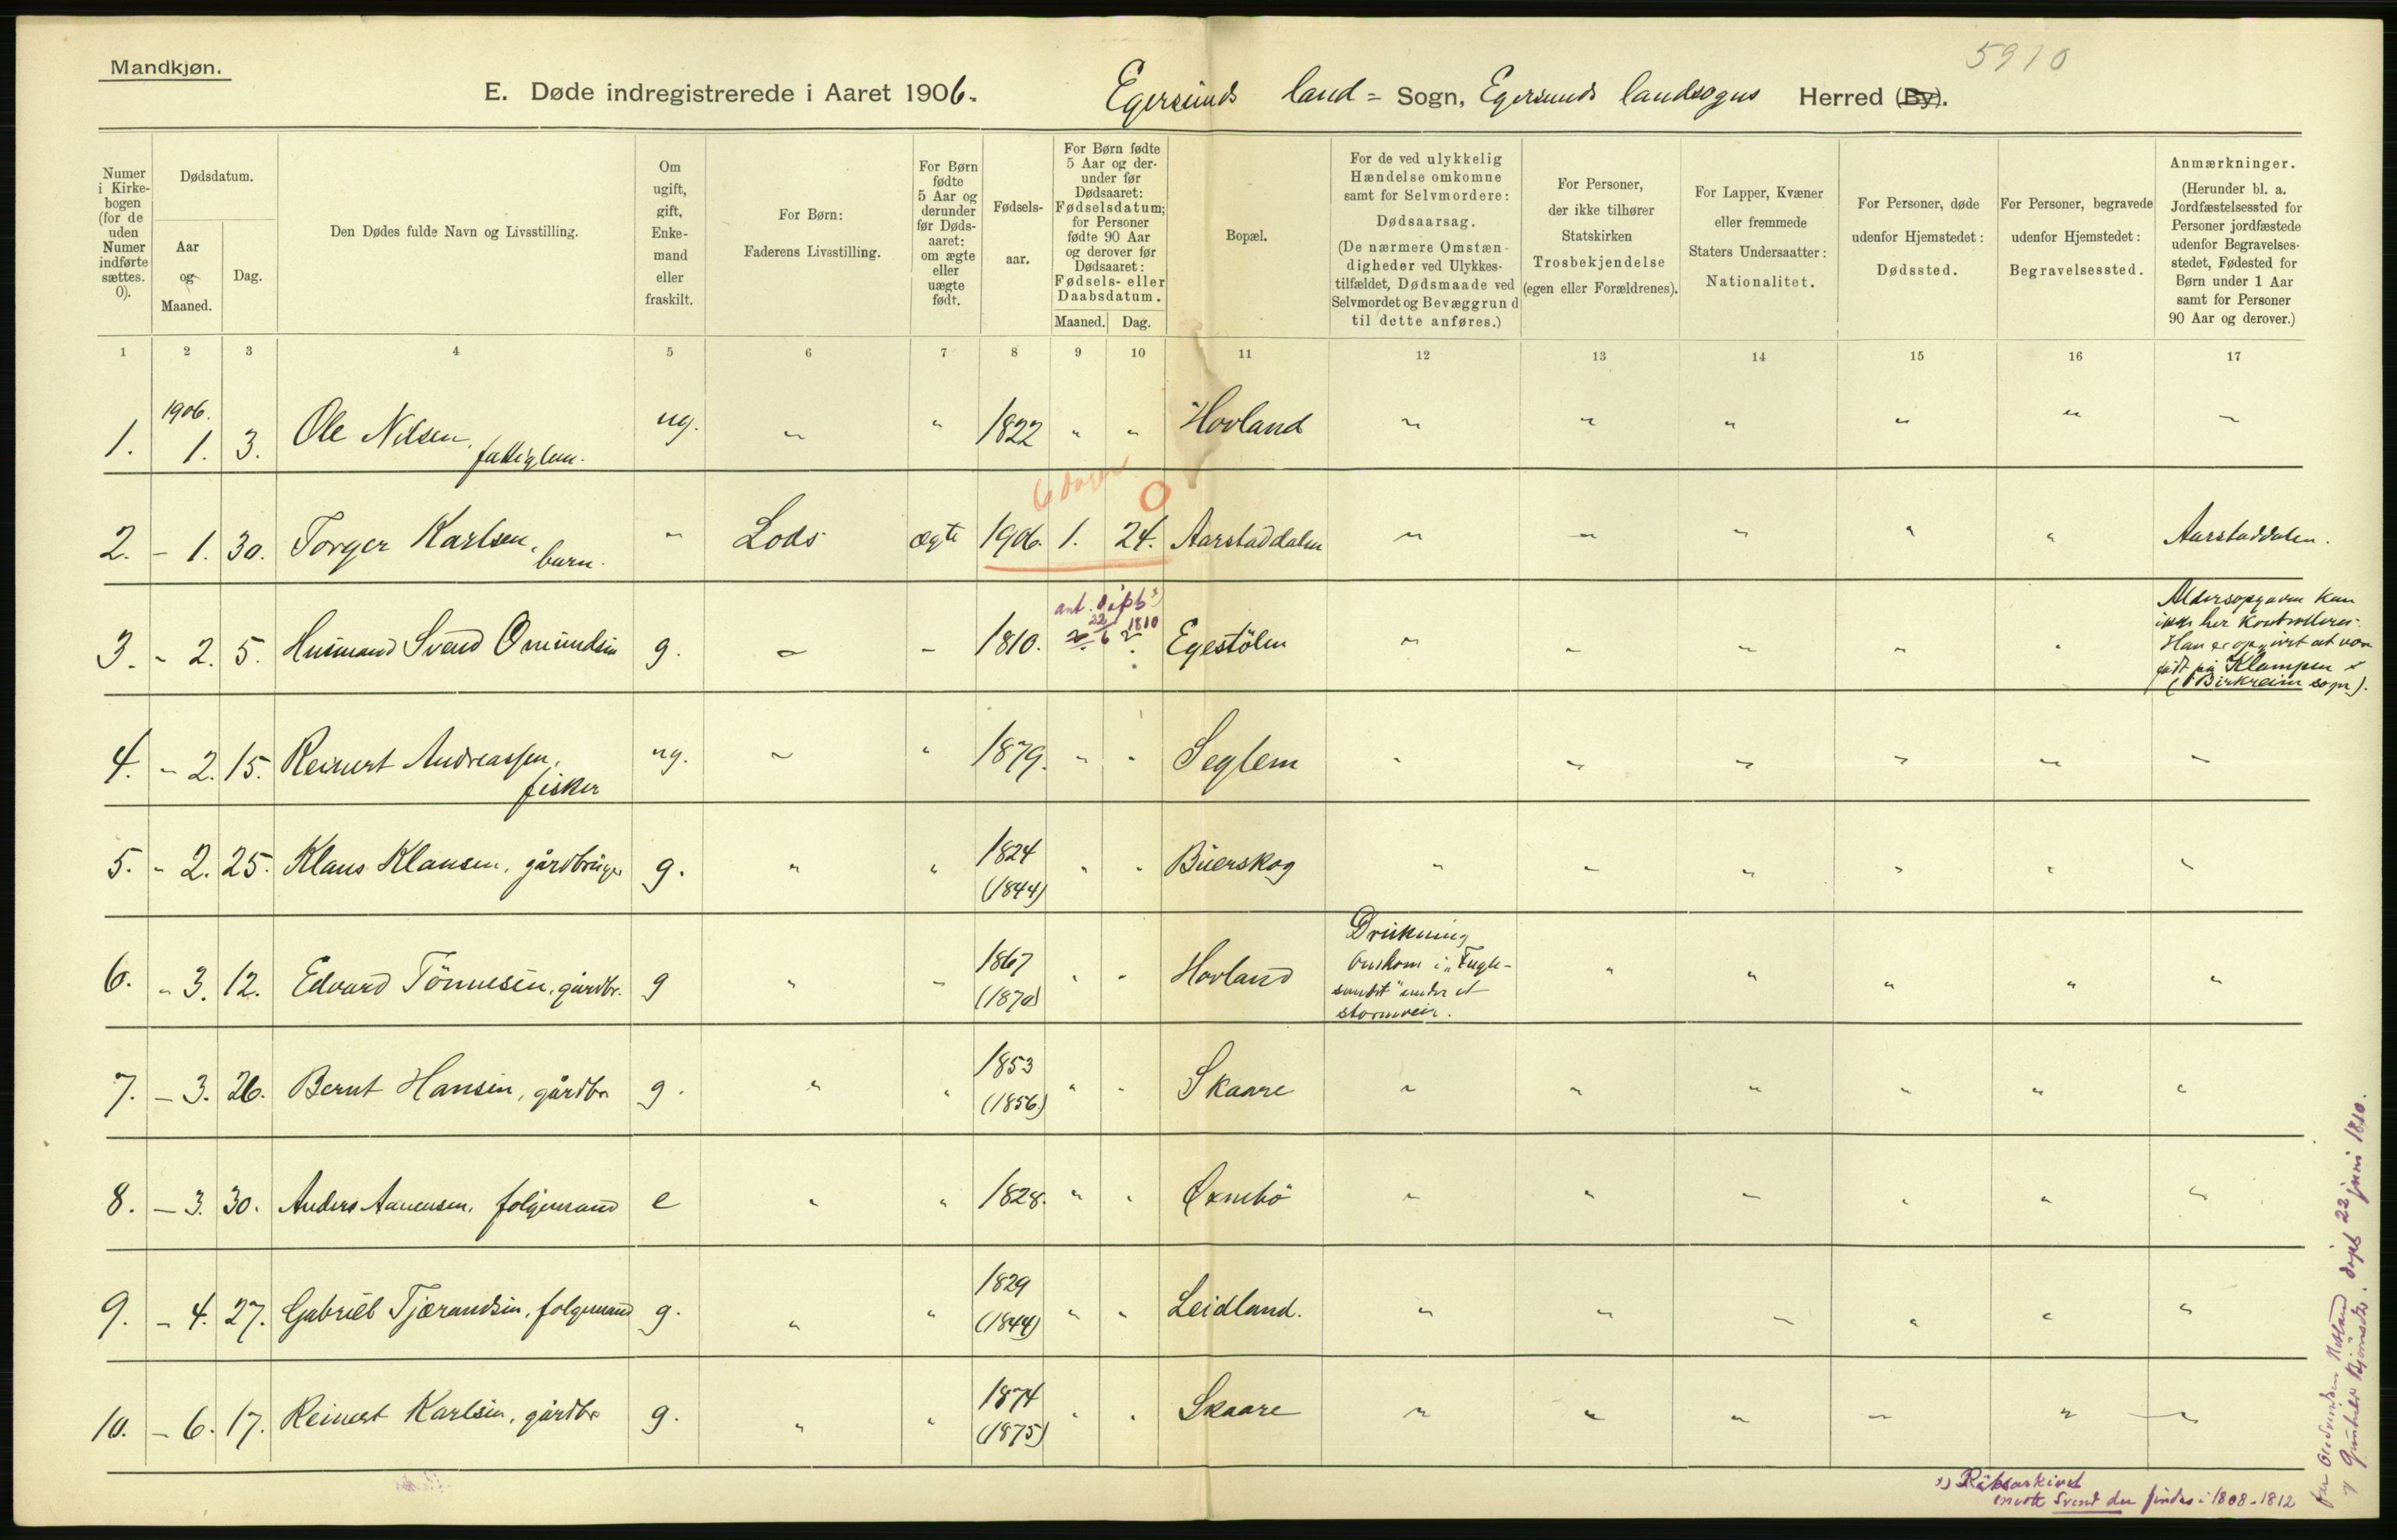 5910
Mandkjøn.
E. Døde indregistrerede i Aaret 1906.
Egersunds land= Sogn, Egersunds landsogns Herred (By).
Numer i Kirke-bogen (for de uden Numer indførte sættes. 0).
Dødsdatum.
Aar og Maaned.
Dag.
Den Dødes fulde Navn og Livsstilling.
Om ugift, gift, Enke-mand eller fraskilt.
For Børn: Faderens Livsstilling.
For Børn fødte 5 Aar og derunder før Døds-aaret: om ægte eller uægte født.
Fødsels-aar.
For Børn fødte 5 Aar og der-under før Dødsaaret: Fødselsdatum; for Personer fødte 90 Aar og derover før Dødsaaret: Fødsels- eller Daabsdatum.
Maaned. Dag.
Bopæl.
For de ved ulykkelig Hændelse omkomne samt for Selvmordere: Dødsaarsag. (De nærmere Omstæn-digheder ved Ulykkes-tilfældet, Dødsmaade ved Selvmordet og Bevæggrund til dette anføres.)
For Personer, der ikke tilhører Statskirken Trosbekjendelse (egen eller Forældrenes).
For Lapper, Kvæner eller fremmede Staters Undersaatter: Nationalitet.
For Personer, døde udenfor Hjemstedet: Dødssted.
For Personer, begravede udenfor Hjemstedet: Begravelsessted.
Anmærkninger. (Herunder bl. a. Jordfæstelsessted for Personer jordfæstede udenfor Begravelses-stedet, Fødested for Børn under 1 Aar samt for Personer 90 Aar og derover.)
1 2 3 4 5 6 7 8 9 10 11 12 13 14 15 16 17
1906.
1. 1. 3. Ole Nilsen, fattiglem. ug. " " 1822 " " Hovland " " " " " "
6 dager 0
2. - 1. 30. Torger Karlsen, barn. " Lods ægte 1906. 1. 24. Aarstaddalen " " " " " Aarstaddalen.
ant. døpt x)
22/6 1810
3. - 2. 5. Husmand Svend Omundsen g. " " 1810. 2 2. Egestölen " " " " " Aldersopgaven kan
ikke her kontrolleres.
Han er opgivet at være
født på Klampen
(i Birkreim sogn).
4. - 2. 15. Reinert Andreassen, fisker ug. " " 1879. " " Seglem " " " " " "
5. - 2. 25. Klaus Klausen, gårdbruger g. " " 1824 (1844) " " Buerskog " " " " " "
6. - 3. 12. Edvard Tönnesen, gårdbr. g " " 1867 (1870) " " Hovland Drukning
Omkom i "Fugle-
sundet" under et
stormveir. " " " " "
7. - 3. 26. Bernt Hansen, gårdbr g. " " 1853 (1856) " " Skaare " " " " " "
8. - 3. 30. Anders Aanensen, folgemand e " " 1828. " " Oxnebö " " " " " "
9. - 4. 27. Gabriel Tjærandsen, folgemand g. " " 1829 (1844) " " Leidland. " " " " " "
10. - 6. 17. Reinert Karlsen, gårdbr g. " " 1874 (1875) " " Skaare " " " " " "
x) Riksarkivet
eneste Svend der findes i 1808-1812
døpt 22 juni 1810.